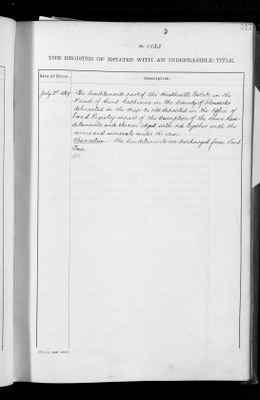 No. 1133
THE REGISTER OF ESTATES WITH AN INDEFEASIBLE TITLE.
Date of Entry.
Description.
July 2nd 1869
The hereditaments part of the Heathville Estate in the
Parish of Saint Catherine in the County of Gloucester
delineated on the Map No 1133 deposited in the Office of
Land Registry as part of the description of the above Here-
ditaments and thereon edged with red together with the
mines and minerals under the same
Observation - The hereditaments are discharged from Land
Tax